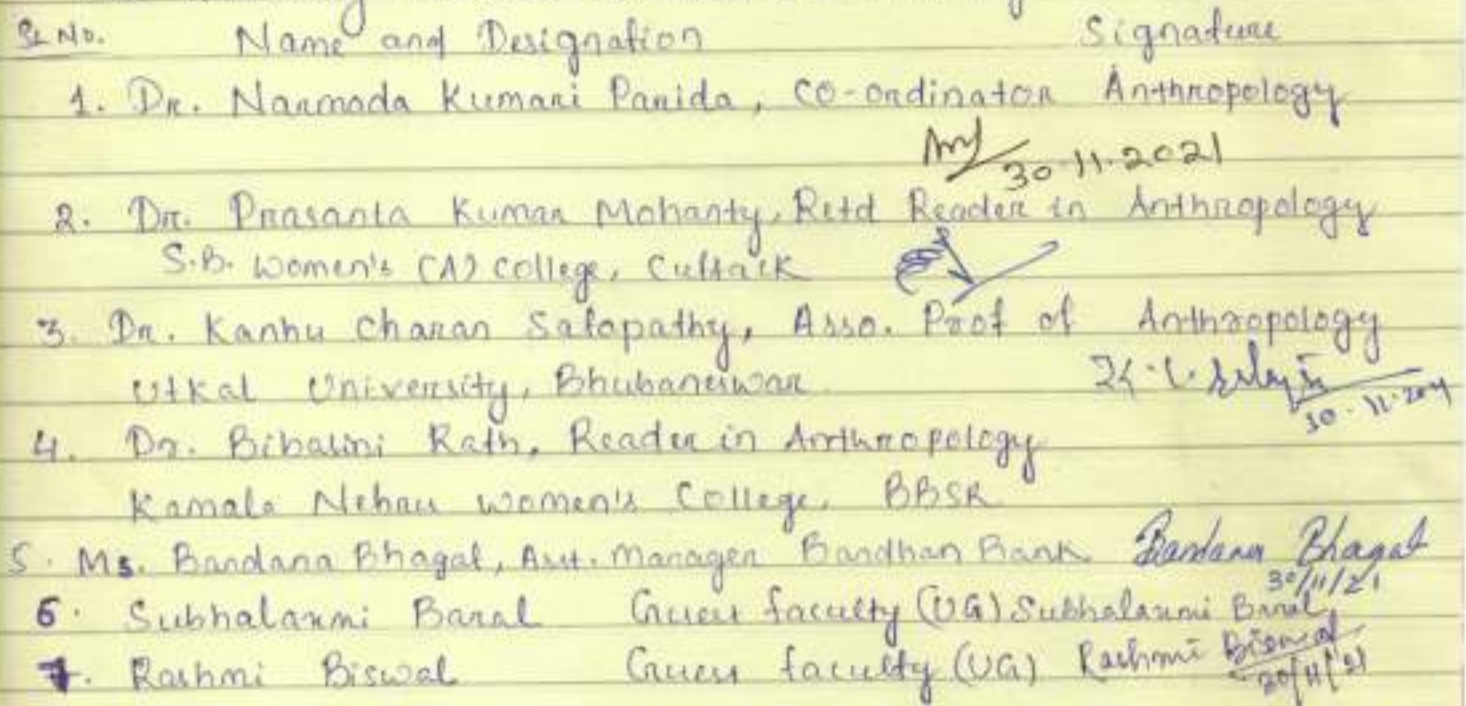 Sl No. Name and Designation Signature
1. Dr. Narmada Kumari Parida, Co-ordinator Anthropology
30.11.2021
2. Dr. Prasanta Kumar Mohanty, Retd Reader in Anthropology
S.B. Women's (A) College, Cuttack
3. Dr. Kanhu Charan Satapathy, Asso. Prof of Anthropology
Utkal University, Bhubaneswar
30.11.2021
4. Dr. Bibasini Rath, Reader in Anthropology
Kamala Nehru Women's College, BBSR
5. Ms. Bandana Bhagat, Asst. Manager Bandhan Bank Bandana Bhagat
30/11/21
6. Subhalaxmi Baral Guest faculty (UG) Subhalaxmi Baral
7. Rashmi Biswal Guest faculty (UG) Rashmi Biswal
30/11/21